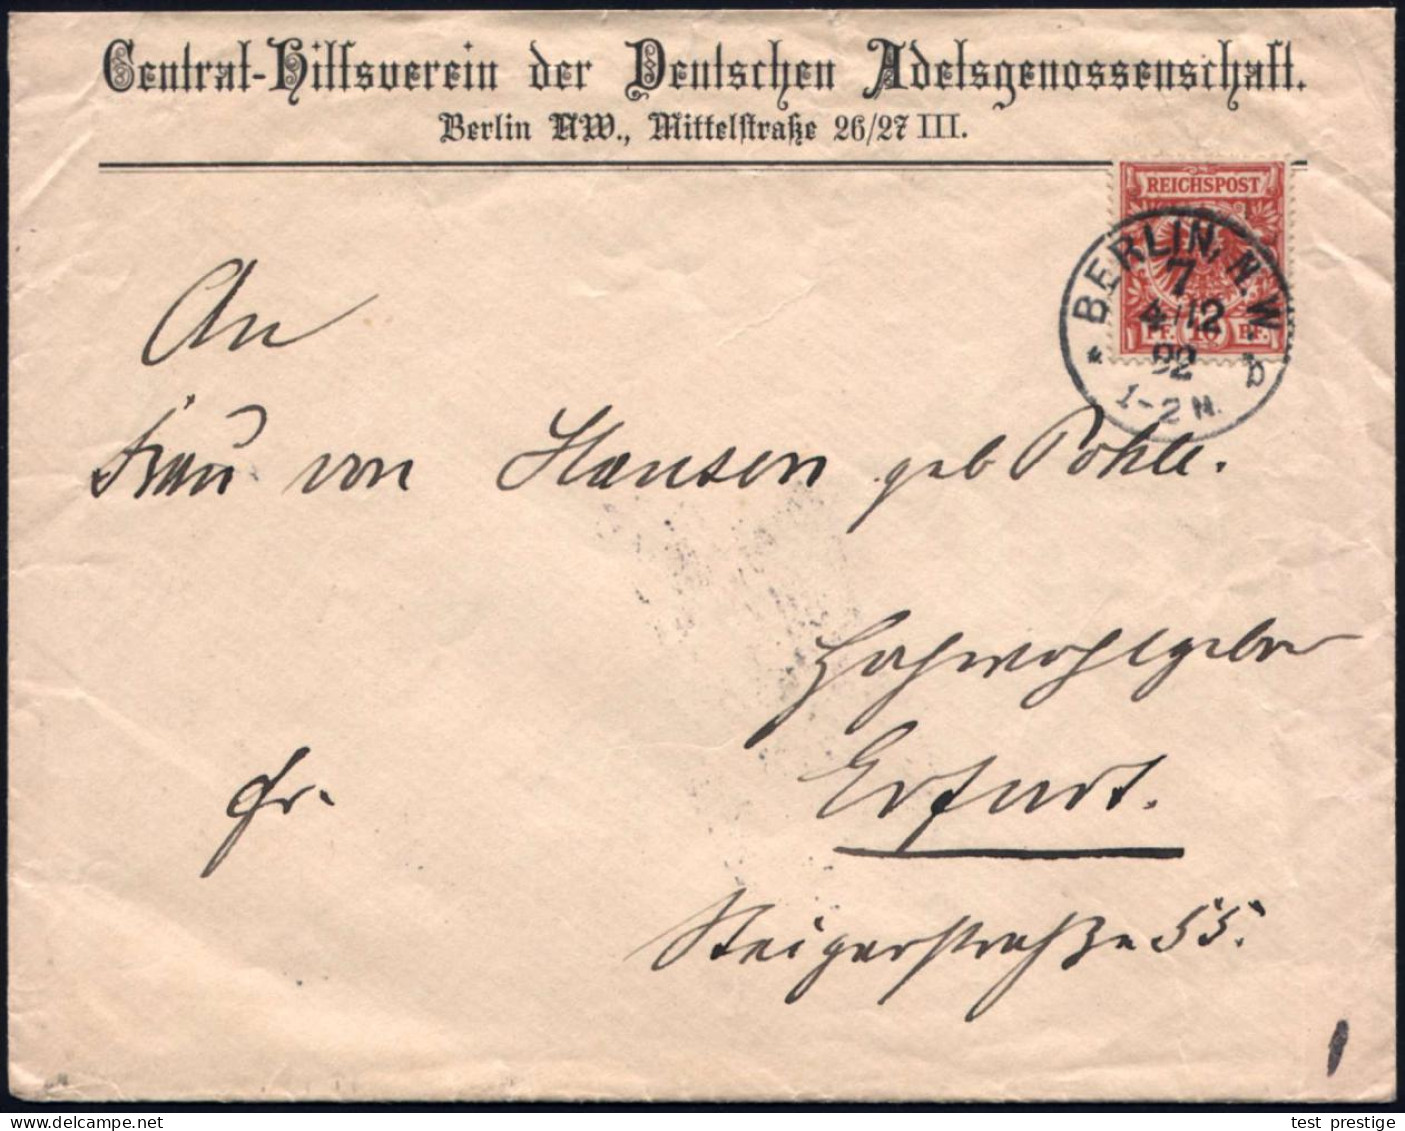 Central-Hilfsverein der Deutschen Adelsgenossenschaft.
Berlin NW., Mittelstraße 26/27 III.
REICHSPOST
PF. 10 PF.
BERLIN, N.W.
7
4/12
92
1-2 N.
* b
An
Frau von Hansen geb Pohle.
Hochwohlgeboren
Erfurt.
fr.
Steigerstraße 55.
test_prestige